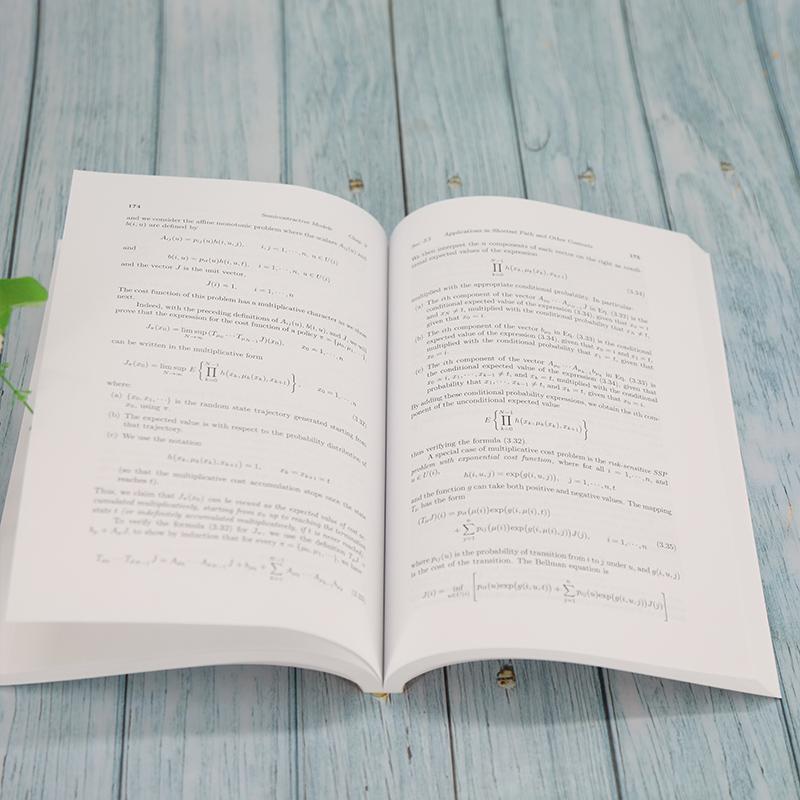 174
Semicontractive Models
Chap. 3
and we consider the affine monotonic problem where the scalars A_{ij}(u) and
b(i, u) are defined by
A_{ij}(u) = p_{ij}(u)h(i, u, j), i, j = 1, · · · , n, u ∈ U(i)
and
b(i, u) = p_{it}(u)h(i, u, t), i = 1, · · · , n, u ∈ U(i)
and the vector J̄ is the unit vector,
J̄(i) = 1, i = 1, · · · , n
The cost function of this problem has a multiplicative character as we show
next.
Indeed, with the preceding definitions of A_{ij}(u), b(i, u), and J̄, we will
prove that the expression for the cost function of a policy π = {μ_0, μ_1, · · ·},
J_π(x_0) = lim sup_{N→∞} (T_{μ_0} · · · T_{μ_{N-1}} J̄)(x_0), x_0 = 1, · · · , n
can be written in the multiplicative form
J_π(x_0) = lim sup_{N→∞} E { ∏_{k=0}^{N-1} h(x_k, μ_k(x_k), x_{k+1}) }, x_0 = 1, · · · , n
(3.32)
where:
(a) {x_0, x_1, · · ·} is the random state trajectory generated starting from
x_0, using π.
(b) The expected value is with respect to the probability distribution of
that trajectory.
(c) We use the notation
h(x_k, μ_k(x_k), x_{k+1}) = 1, x_k = x_{k+1} = t
(so that the multiplicative cost accumulation stops once the state
reaches t).
Thus, we claim that J_π(x_0) can be viewed as the expected value of cost ac-
cumulated multiplicatively, starting from x_0 up to reaching the termination
state t (or indefinitely accumulated multiplicatively, if t is never reached).
To verify the formula (3.32) for J_π, we use the definition T_μ J =
b_μ + A_μ J, to show by induction that for every π = {μ_0, μ_1, · · ·}, we have
(3.33)
Sec. 3.5
Applications in Shortest Path and Other Contexts
175
We then interpret the n components of each vector on the right as condi-
tional expected values of the expression
∏_{k=0}^{N-1} h(x_k, μ_k(x_k), x_{k+1})
(3.34)
multiplied with the appropriate conditional probability. In particular:
(a) The ith component of the vector A_{μ_0} · · · A_{μ_{N-1}} J̄ in Eq. (3.33) is the
conditional expected value of the expression (3.34), given that x_0 = i
and x_N ≠ t, multiplied with the conditional probability that x_N ≠ t,
given that x_0 = i.
(b) The ith component of the vector b_{μ_0} in Eq. (3.33) is the conditional
expected value of the expression (3.34), given that x_0 = i and x_1 = t,
multiplied with the conditional probability that x_1 = t, given that
x_0 = i.
(c) The ith component of the vector A_{μ_0} · · · A_{μ_{k-1}} b_{μ_k} in Eq. (3.33) is
the conditional expected value of the expression (3.34), given that
x_0 = i, x_1, · · · , x_{k-1} ≠ t, and x_k = t, multiplied with the conditional
probability that x_1, · · · , x_{k-1} ≠ t, and x_k = t, given that x_0 = i.
By adding these conditional probability expressions, we obtain the ith com-
ponent of the unconditional expected value
E { ∏_{k=0}^{N-1} h(x_k, μ_k(x_k), x_{k+1}) }
thus verifying the formula (3.32).
A special case of multiplicative cost problem is the risk-sensitive SSP
problem with exponential cost function, where for all i = 1, · · · , n, and
u ∈ U(i),
h(i, u, j) = exp(g(i, u, j)), j = 1, · · · , n, t
and the function g can take both positive and negative values. The mapping
T_μ has the form
(T_μ J)(i) = p_{it}(μ(i))exp(g(i, μ(i), t))
+ ∑_{j=1}^{n} p_{ij}(μ(i))exp(g(i, μ(i), j))J(j), i = 1, · · · , n (3.35)
where p_{ij}(u) is the probability of transition from i to j under u, and g(i, u, j)
is the cost of the transition. The Bellman equation is
J(i) = inf_{u∈U(i)} [ p_{it}(u)exp(g(i, u, t)) + ∑_{j=1}^{n} p_{ij}(u)exp(g(i, u, j))J(j) ]